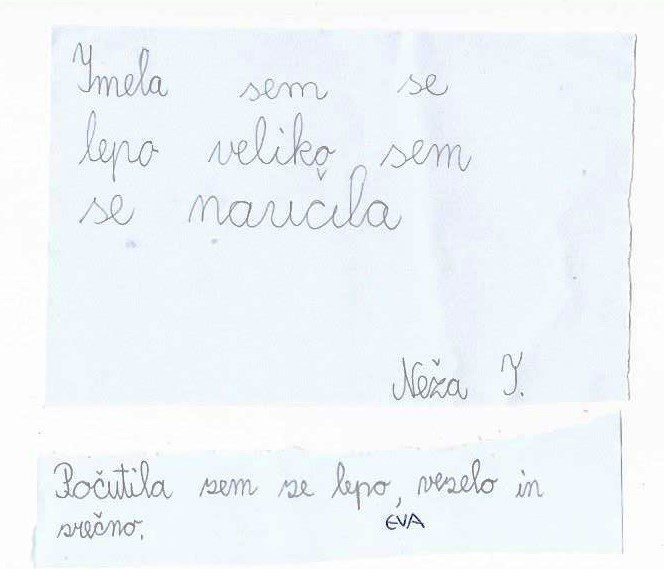 Imela sem se
lepo veliko sem
se naučila
Neža I.
Počutila sem se lepo, veselo in
srečno.
EVA